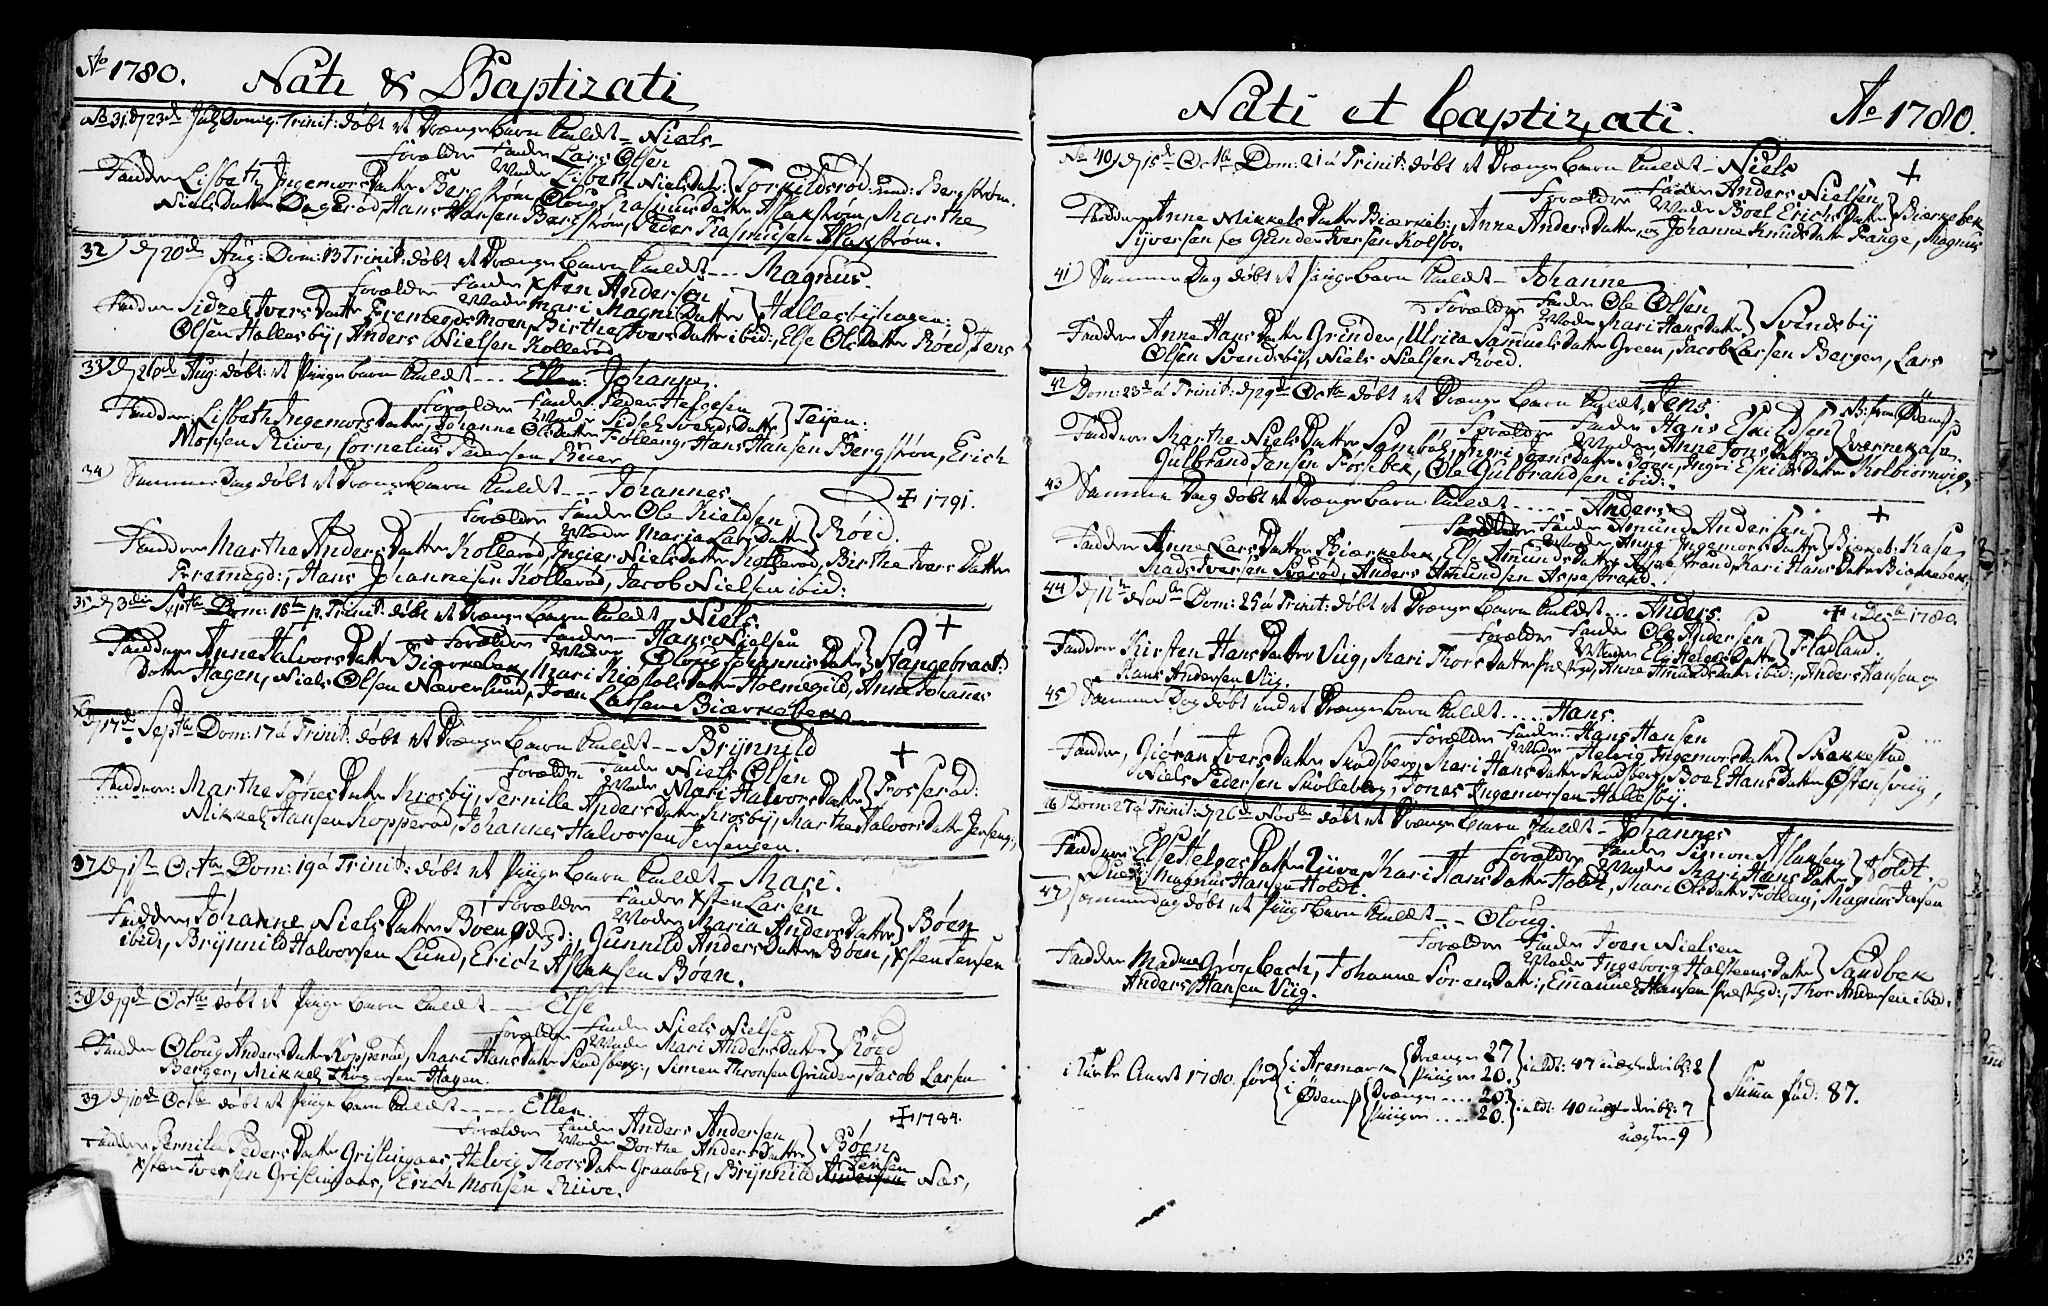 Ao 1780. Nati & Baptizati
No 31, d 23de July Domin: Trinit: døbt et Drænge Barn kaldet - Niels -
Forældre Fader Lars Olsen
Moder Lisbeth Niels Dat: Torkildsrød
Faddere Lisbeth Ingemors Datter Bergstrøm, Oloug Rasmus Datter Aslakstrøm, Marthe
Niels Datter Dagerød, Hans Hansen Bergstrøm, Peder Rasmusen Aslakstrøm.
32) d 20de Aug: Dom: 13 Trinit: døbt et Drænge Barn kaldet - - - Magnus.
Forældre Fader Xsten Andersen
Moder Mari Magni Datter Hallesbyhagen:
Faddere Sidzel Ivers Datter Fremegdsmoen, Birthe Ivers Datter ibid:, Else Ols Datter Røed, Jens
Olsen Hallesby, Anders Nielsen Kollerød.
33) d 26de Aug: døbt: et Pige Barn kaldet - - - Ellen: Johanne.
Forældre Fader Peder Helgesen
Moder Sidsel Svends Datter Teijen:
Faddere: Lisbeth Ingemors Datter, Johanne Ols Datter Follang, Hans Hansen Bergstrøm, Erich
Monsen Riive, Cornelius Pedersen Buer.
34) Samme Dag døbt et Drænge Barn kaldet - - - Johannes + 1791.
Forældre Fader Ole Kieldsen
Moder Maria Lars Datter Røed.
Faddere Marthe Anders Datter Kollerød, Ingier Niels Datter Kollerød, Birthe Ivers Datter
Fremegd:, Hans Johannesen Kollerød, Jacob Nielsen ibid:
35) d 3die Septbr Dom: 15 p. Trinit: døbt et Drænge Barn kaldet Niels. +
Forældre Fader Hans Nielsen
Moder Oloug Johannis Datter Stangebraat:
Faddere Anne Halvors Datter Biørnebek, Mari Kiøstols Datter Holmegild, Anne Johannes
Datter Hagen, Niels Olsen Næverlund, Joen Larsen Biørnebek
d 17de Septbr Dom: 17 a Trinit: døbt et Drænge Barn kaldet - - Brÿnnild +
Forældre Fader Niels Olsen
Moder Mari Halvors Datter Fosserød:
Faddere: Marthe Jones Datter Krosby, Pernille Anders Datter Krosby, Marthe Halvors Datter Jerseng:,
Mikkel Hansen Kopperød, Johannes Halvorsen Jersengen.
37) d 1ste Octbr Dom: 19 a Trinit: døbt et Pige Barn kaldet - Mari.
Forældre Fader Xsten Larsen
Moder Maria Anders Datter Bøen
Faddere Johanne Niels Datter Bøen gdsgd:, Gunnild Anders Datter Bøen, Xsten Jensen
ibid, Brÿnnild Halvorsen Lund, Erich Aslaksen Bøen.
38) d 9de Octbr døbt et Pige Barn kaldet - - - Else
Forældre Fader Niels Nielsen
Moder Mari Anders Datter Røed
Faddere Oloug Anders Datter Kopperød, Mari Hans Datter Skudsberg:, Simen Thronsen Grinder, Jacob Larsen
Berger, Mikkel Hagen.
39) d 10de Octbr døbt et Pige Barn kaldet - - - - Ellen. + 1784.
Forældre Fader Anders Andersen
Moder Dorthe Anders Datter Bøen
Faddere Pernille Peders Datter Grislingaas, Helvig Thors Datter Graabek, Brÿnnild Andersen Jensen Næs,
Xsten Iversen Grislingaas, Erich Monsen Riive.
Nati et Baptizati. Ao 1780.
No 40) d 15de Octbr Dom: 21 a Trinit: døbt et Drænge Barn kaldet - Niels +
Forældre Fader Anders Nielsen
Moder Boel Erichs Datter Biørkebek
Faddere Anne Mikkels Datter Biørkeb:, Anne Anders Datter, og Johanne Knuds Datter Fange, Magnus
Syversen og Gunder Iversen Kolsbo.
41) Samme Dag døbt et Pige Barn kaldet - Johanne
Forældre Fader Ole Olsen
Moder Mari Hans Datter Svendsby
Faddere Anne Hans Datter Grinder, Ulrica Samuels Datter Green, Jacob Larsen Berger, Lars
Olsen Svendsby, Niels Nielsen Røed.
42) Dom: 23de a Trinit: d 29de Octbr døbt et Drænge Barn kaldet Jens. NB: fra Ødems
Forældre Fader Hans Eskildsen
Moder Anne Jons Datter Qvernekasa
Faddere Marthe Niels Datter Sambøl, Ingri Joens Datter Joen, Ingri Eskilds Datter Kolbiørnviig,
Gulbrand Jensen Fosebek, Ole Gulbrandsen ibid:.
43) Samme Dag døbt et Drænge Barn kaldet - - - - - Anders +
Forældre Fader Amund Andersen
Moder Anne Ingemors Datter Biørkeb: Kasa
Faddere Anne Lars Datter Biørkebek, Else Amunds Datter Aspestrand, Mari Hans Datter Biørkebek,
Mads Iversen Sverød, Anders Amundsen Aspestrand.
44) d 12te Novbr Dom: 25 a Trinit: døbt et Drænge Barn kaldet - - Anders. + Decbr 1780.
Forældre Fader Ole Andersen
Moder Eli Helges Datter Fladland.
Faddere Kirsten Hans Datter Viig, Mari Thors Datter Præstegd, Anne Amunds Datter ibid:, Anders Hansen og
Hans Andersen Viig.
45) Samme Dag døbt endet Drænge Barn kaldet - - - - Hans.
Forældre Fader Hans Hansen
Moder Helvig Ingemors Datter Skakkestad
Faddere, Giøran Ivers Datter Skudsberg, Mari Hans Datter Skudsberg, Boel Hans Datter Østensviig,
Niels Pedersen Skolleborg, Jonas Ingemorsen Hallesbÿ.
46) Dom: 27 a Trinit: d 26de Novbr døbt et Drænge Barn kaldet - Johannes
Forældre Fader Simon Aslaksen
Moder Mari Hans Datter Holdt.
Faddere Else Helges Datter Riive, Kari Hans Datter Holdt, Mari Ols Datter Tolberg, Magnus Jensen
Magnus Hansen Holdt.
47) Sammedag døbt et Pige Barn kaldet - - Oloug.
Forældre Fader Joen Nielsen
Moder Ingeborg Halsteens Datter Sandbek
Faddere Madme Grønbech, Johanne Sørens Datter:, Emanuel Hansen Præstegd:, Thor Andersen ibid:
Anders Hansen Viig.
i Kirke Aaret 1780. fød
i Aremark Drænger 27
Piiger 20. i alt: 47 uægte deribl: 2
i Ødems Drænger - - - 20.
Piiger - - - 20. i alt: 40 uægte deribl: 7
uægte 9
Summa fød: 87.